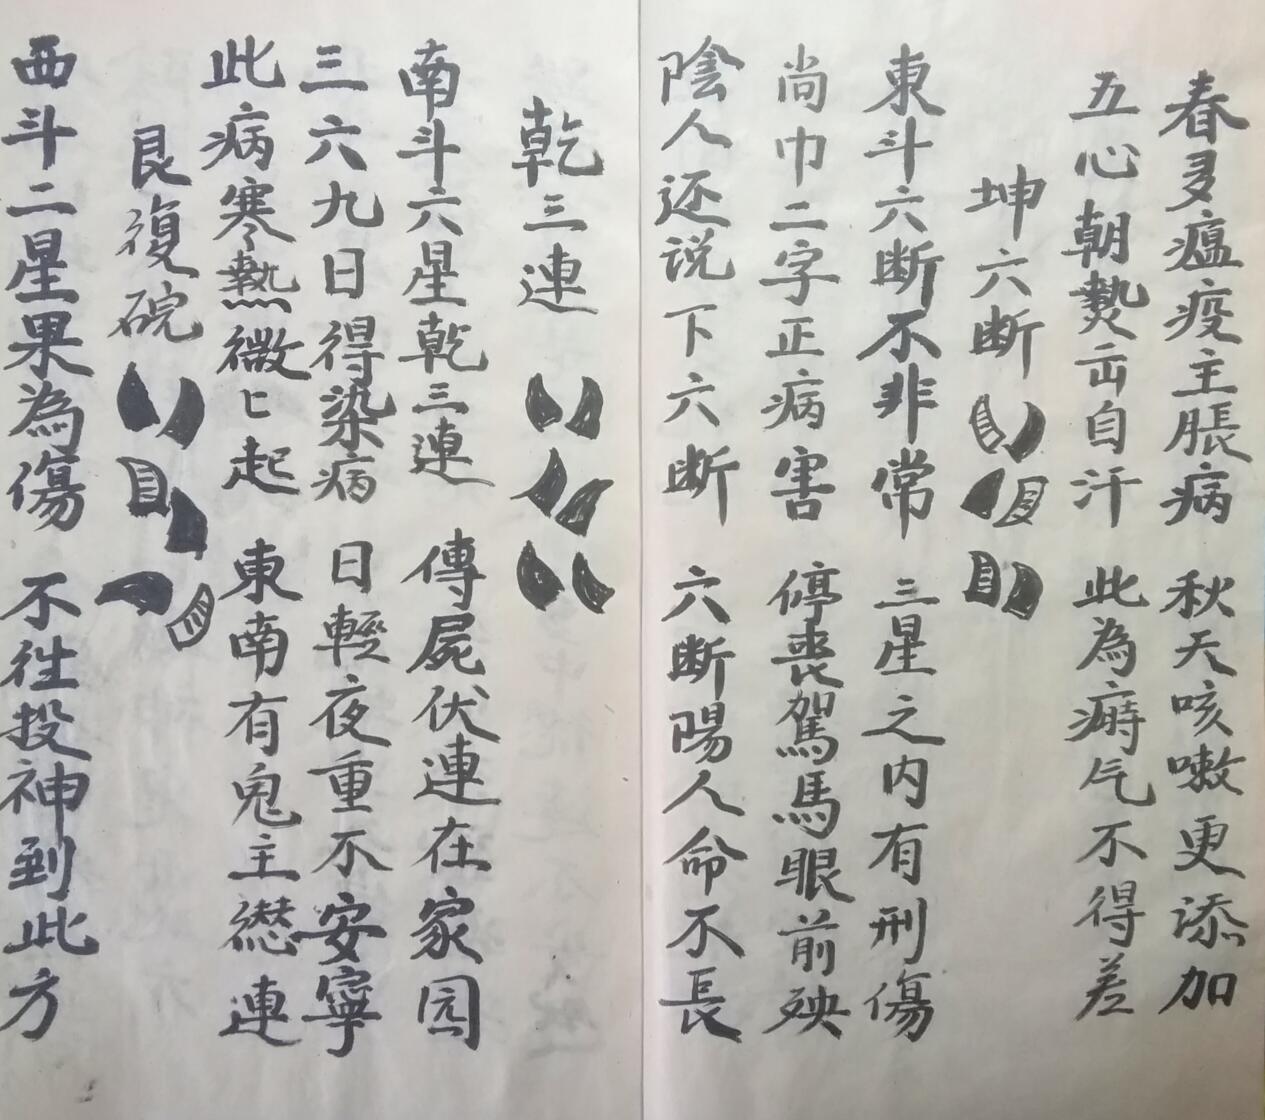 春多瘟疫主脹病 秋天咳嗽更添加
五心朝熱出自汗 此為癖气不得差
坤六断
東斗六断不非常 三星之内有刑傷
尚巾二字正病害 停喪駕馬眼前殃
陰人还说下六断 六断陽人命不長
乾三連
南斗六星乾三連 傳屍伏連在家园
三六九日得染病 日輕夜重不安寧
此病寒熱微匕起 東南有鬼主連
艮復碗
西斗二星果為傷 不往投神到此方